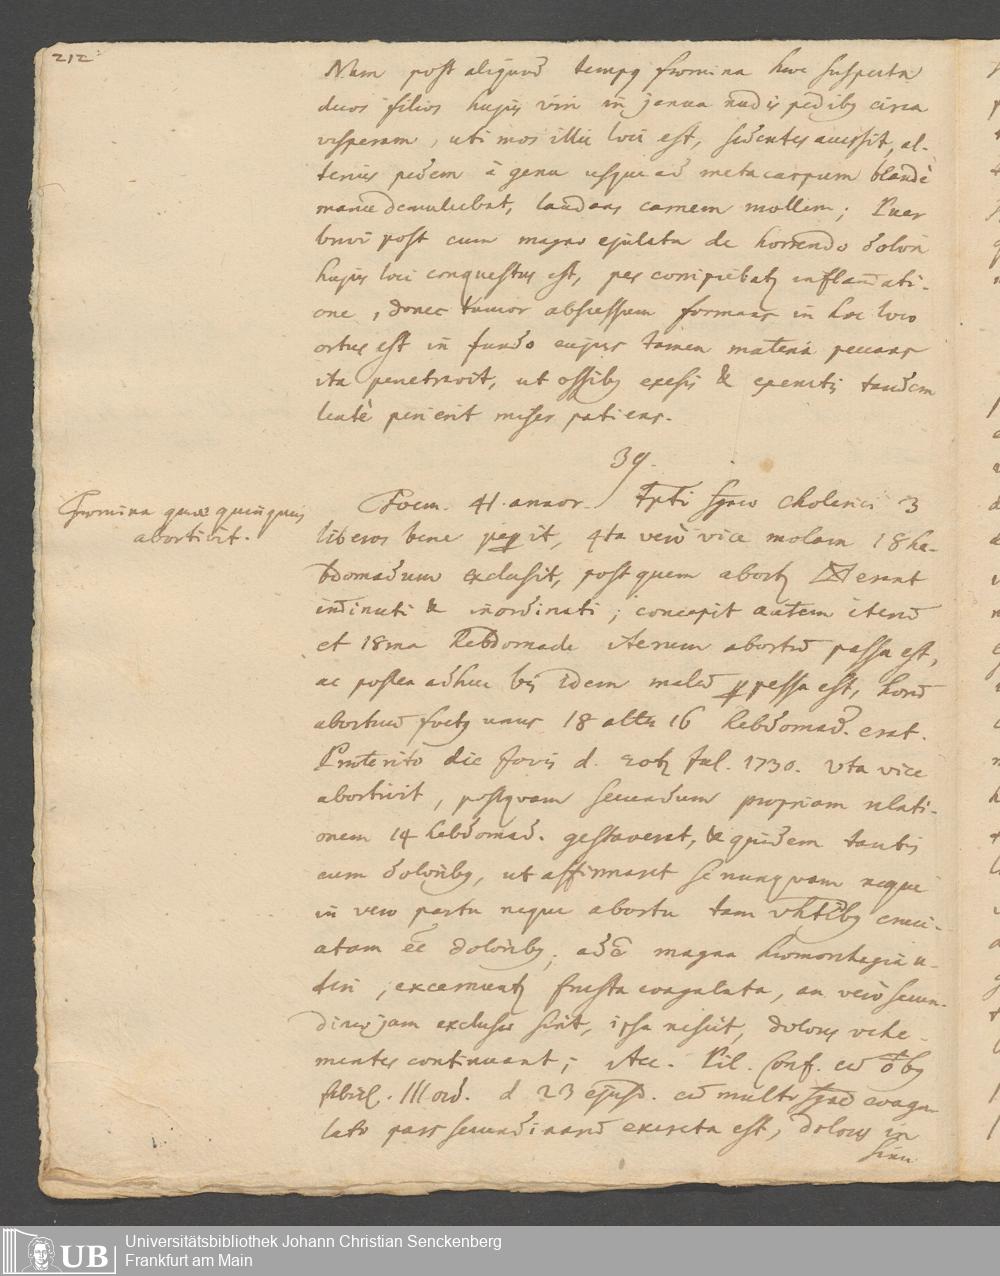 212
Nam post aliquod tempq foemina haec suspecta
duos filios hujus viri in janua nudis pedibq circa
vesperam, uti mos illic loci est, sedentes accessit, al-
terius pedem à genu usque ad metacarpum blandè
manu demulcebat, laudans carnem mollem; Puer
brevi post cum magno ejulatu de horrendo dolori
hujus loci conquestus est, pes corripiebatq inflam̄ati-
one, donec tumor abscessum formans in hoc loco
ortus est in fundo cujus tamen materia peccans
ita penetravit, ut ossibq exesis & tandem
perierit miser patiens.
39.
Foemina quae quinquies
abortivit.
Foem. 41. annor. cholerici 3
liberos bene peperit, 4ta verò vice molam 18 he-
bdomadum exclusit, post quem abortq erant
& inordinati; concepit autem iterū
et 18ma hebdomade iterum abortū passa est,
ac postea adhuc bis idem malū perpessa est, horū
abortuū foetq unus 18 alter 16 hebdomad. erat.
Praeterito die Jovis d. 20tq Jul. 1730. Vta vice
abortivit, postquam secundum propriam relati-
onem 14 hebdomad. gestaverat, & quidem tantis
cum doloribq, ut affirmaret se nunquam neque
in vero partu neque abortu tam cruci-
atam eē doloribq, adē magna haemorrhagia u-
teri, excernentq frusta coagulata, an verò secun-
dinae jam exclusae sint, ipsa nescit, dolores vehe-
mentes continuant; Acc. Pil. Conf. cū
III ord. d 23 ejusd. cū multo coagu-
lato pars secundinarū excreta est, dolores in
sinu
Universitätsbibliothek Johann Christian Senckenberg
Frankfurt am Main
UB